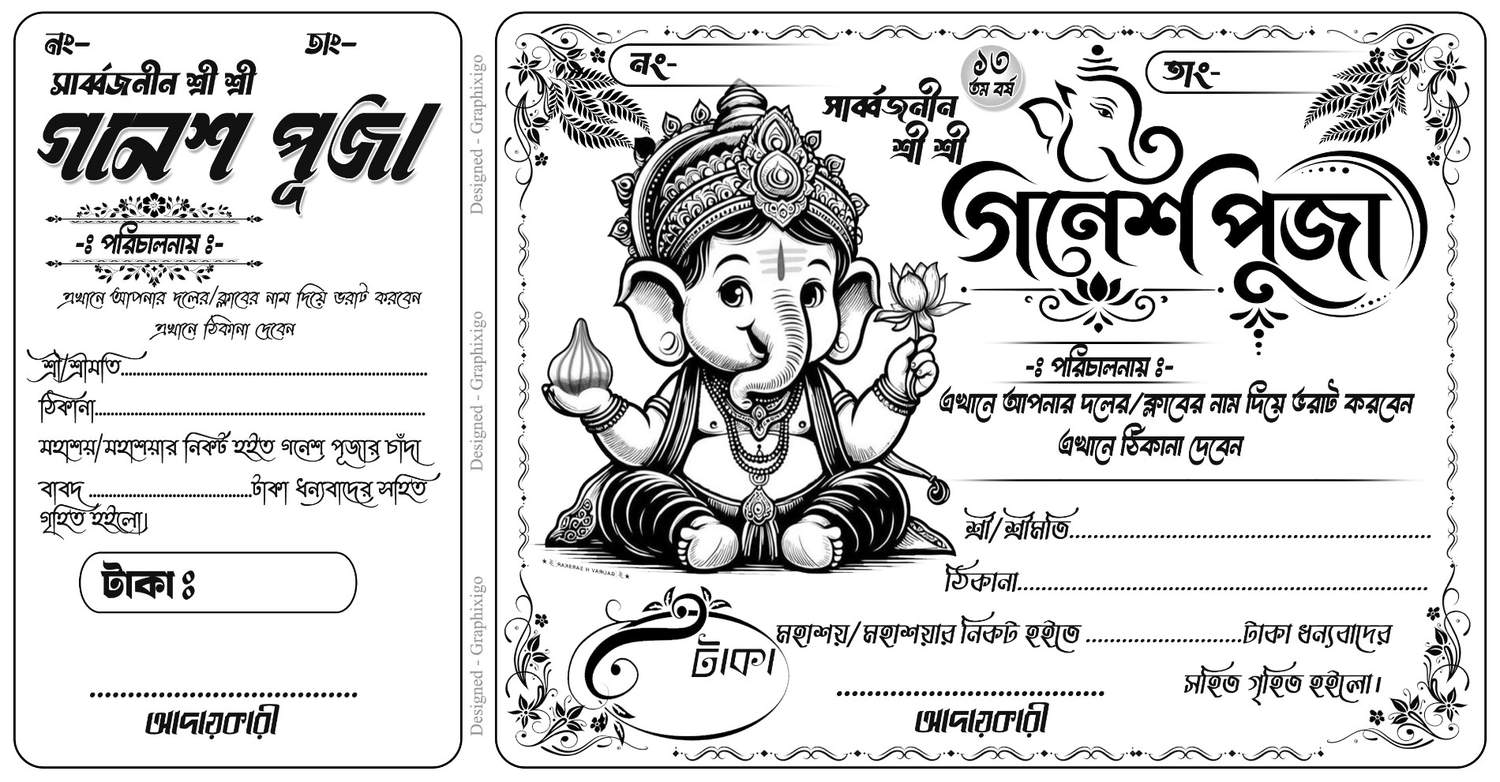 নং–
তাং–
সার্ব্বজনীন শ্রী শ্রী
গনেশ পূজা
-ঃ পরিচালনায় ঃ-
এখানে আপনার দলের/ক্লাবের নাম দিয়ে ভরাট করবেন
এখানে ঠিকানা দেবেন
শ্রী/শ্রীমতি................................
ঠিকানা................................
মহাশয়/মহাশয়ার নিকট হইত গনেশ পূজার চাঁদা
বাবদ ................................টাকা ধন্যবাদের সহিত
গৃহিত হইলো।
টাকা ঃ
................................
আদায়কারী
Designed - Graphixigo
Designed - Graphixigo
Designed - Graphixigo
নং-
১৩
তম বর্ষ
তাং-
সার্ব্বজনীন
শ্রী শ্রী
গনেশ পূজা
-ঃ পরিচালনায় ঃ-
এখানে আপনার দলের/ক্লাবের নাম দিয়ে ভরাট করবেন
এখানে ঠিকানা দেবেন
শ্রী/শ্রীমতি................................
ঠিকানা................................
মহাশয়/মহাশয়ার নিকট হইতে ................................টাকা ধন্যবাদের
সহিত গৃহিত হইলো।
টাকা
................................
আদায়কারী